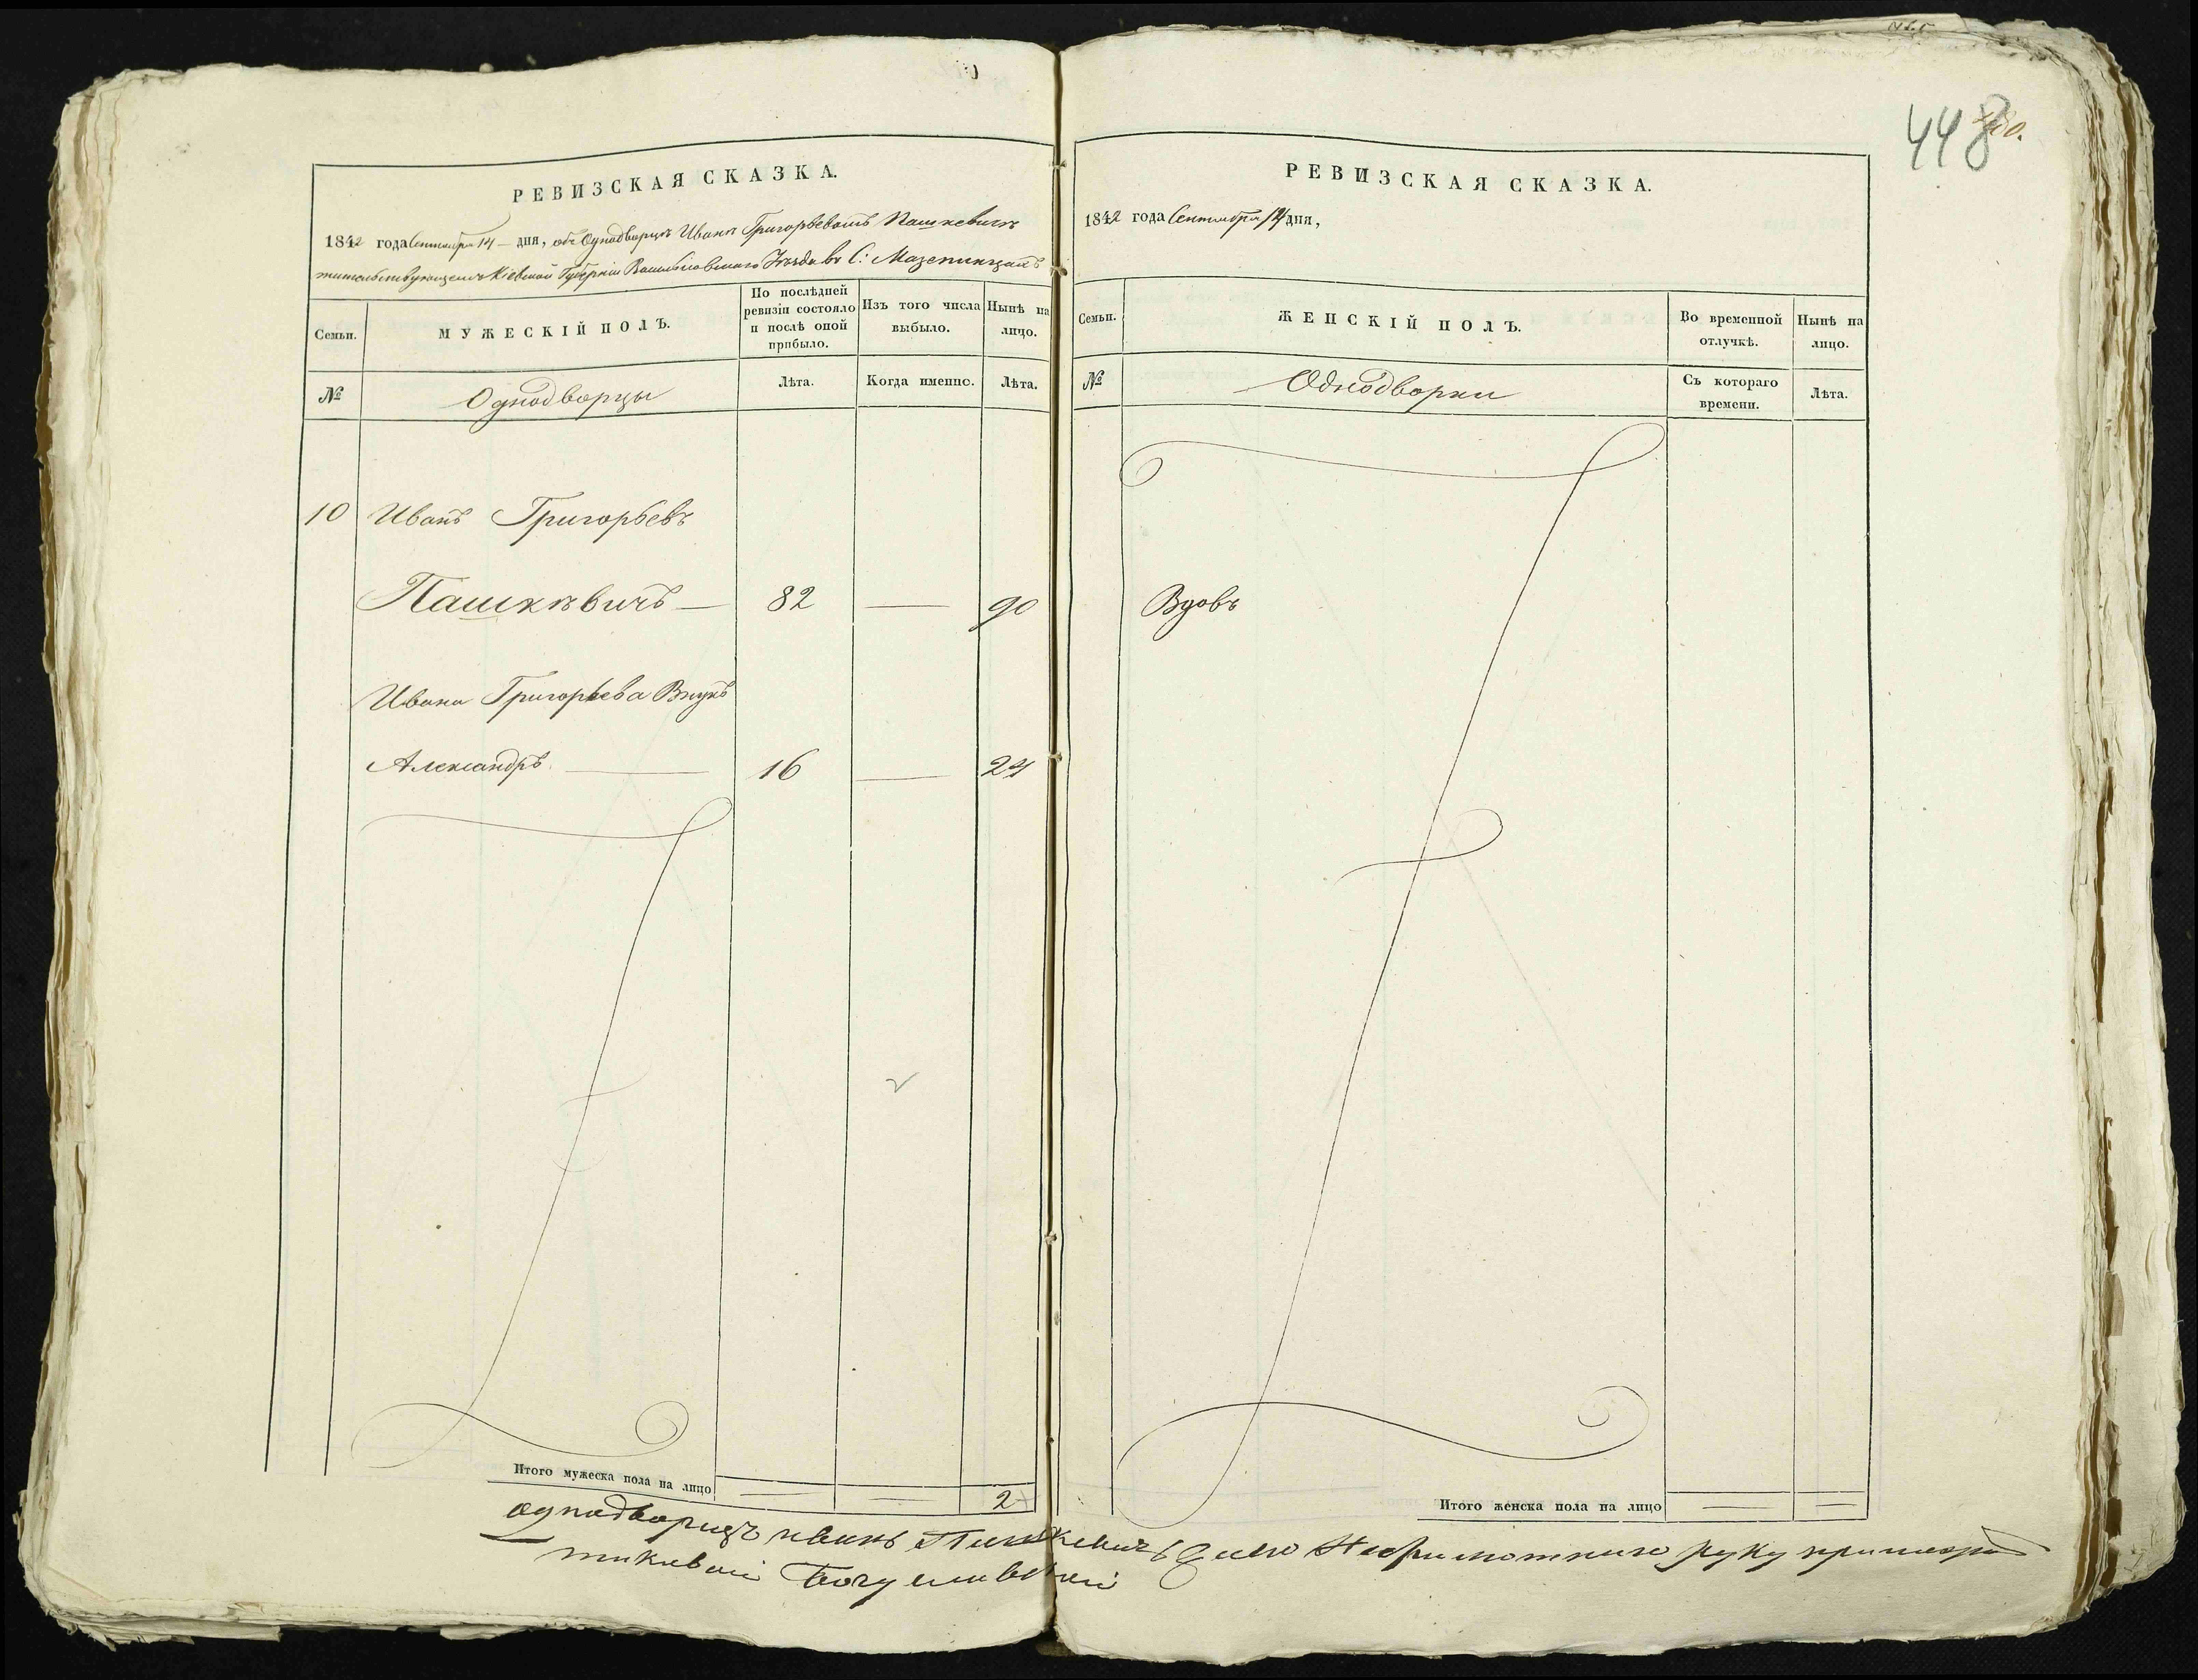 448
РЕВИЗСКАЯ СКАЗКА.
1842 года Сентября 14 – дня, объ Однодворцѣ Иванѣ Григорьевомъ Пашкевичѣ
жительствующемъ Кіевской Губерніи Васильковскаго Уѣзда въ С: Мазепинцахъ
Семьи.
МУЖЕСКІЙ ПОЛЪ.
По послѣдней ревизіи состояло и послѣ оной прибыло.
Изъ того числа выбыло.
Нынѣ на лицо.
№
Однодворцы
Лѣта.
Когда именно.
Лѣта.
10 Иванъ Григорьевъ
Пашкѣвичъ — 82 — 90
Ивана Григорьева Внукъ
Александръ. — 16 — 24
Итого мужеска пола на лицо
2
РЕВИЗСКАЯ СКАЗКА.
1842 года Сентября 14 дня,
Семьи.
ЖЕНСКІЙ ПОЛЪ.
Во временной отлучкѣ.
Нынѣ на лицо.
№
Однодворки
Съ котораго времени.
Лѣта.
Вдовъ
Итого женска пола на лицо
однодворецъ иванъ Пашкевичъ
руку